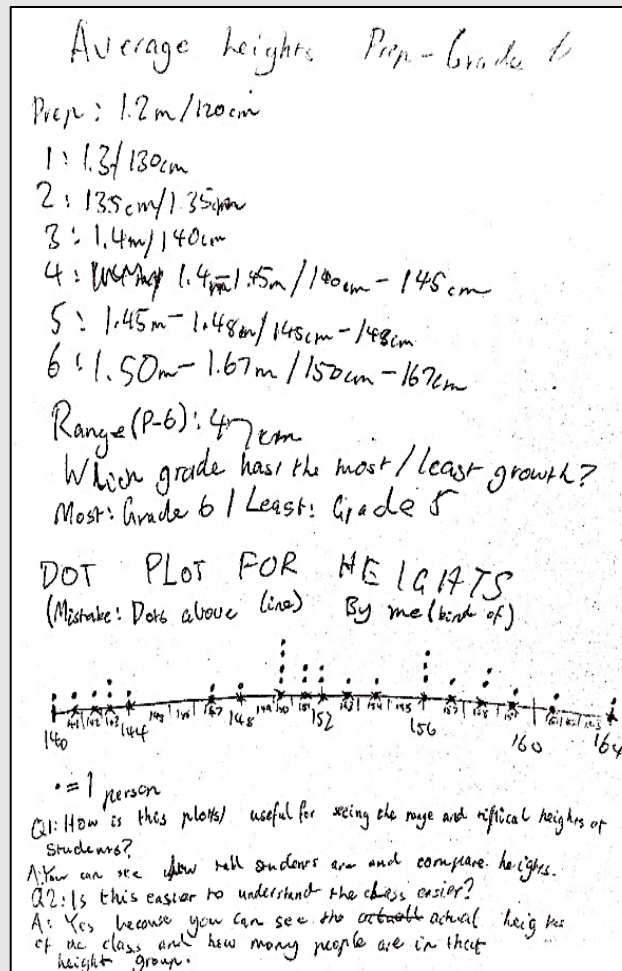 Average heights Prep - Grade 6
Prep: 1.2m/120cm
1: 1.3/130cm
2: 135cm/1.35cm
3: 1.4m/140cm
4: 1.4m-1.45m/140cm - 145cm
5: 1.45m - 1.48m/145cm - 148cm
6: 1.50m - 1.67m/150cm - 167cm
Range (P-6): 47cm
Which grade has the most/least growth?
Most: Grade 6 | Least: Grade 5
DOT PLOT FOR HEIGHTS
(Mistake: Dots above line) By me (kind of)
140 141 142 143 144 145 146 147 148 149 150 151 152 153 154 155 156 157 158 159 160 161 162 163 164
• = 1 person
Q1: How is this plots/ useful for seeing the range and heights of
students?
A: You can see how tall students are and compare heights.
Q2: Is this easier to understand the class easier?
A: Yes because you can see the actual heights
of the class and how many people are in that
height group.